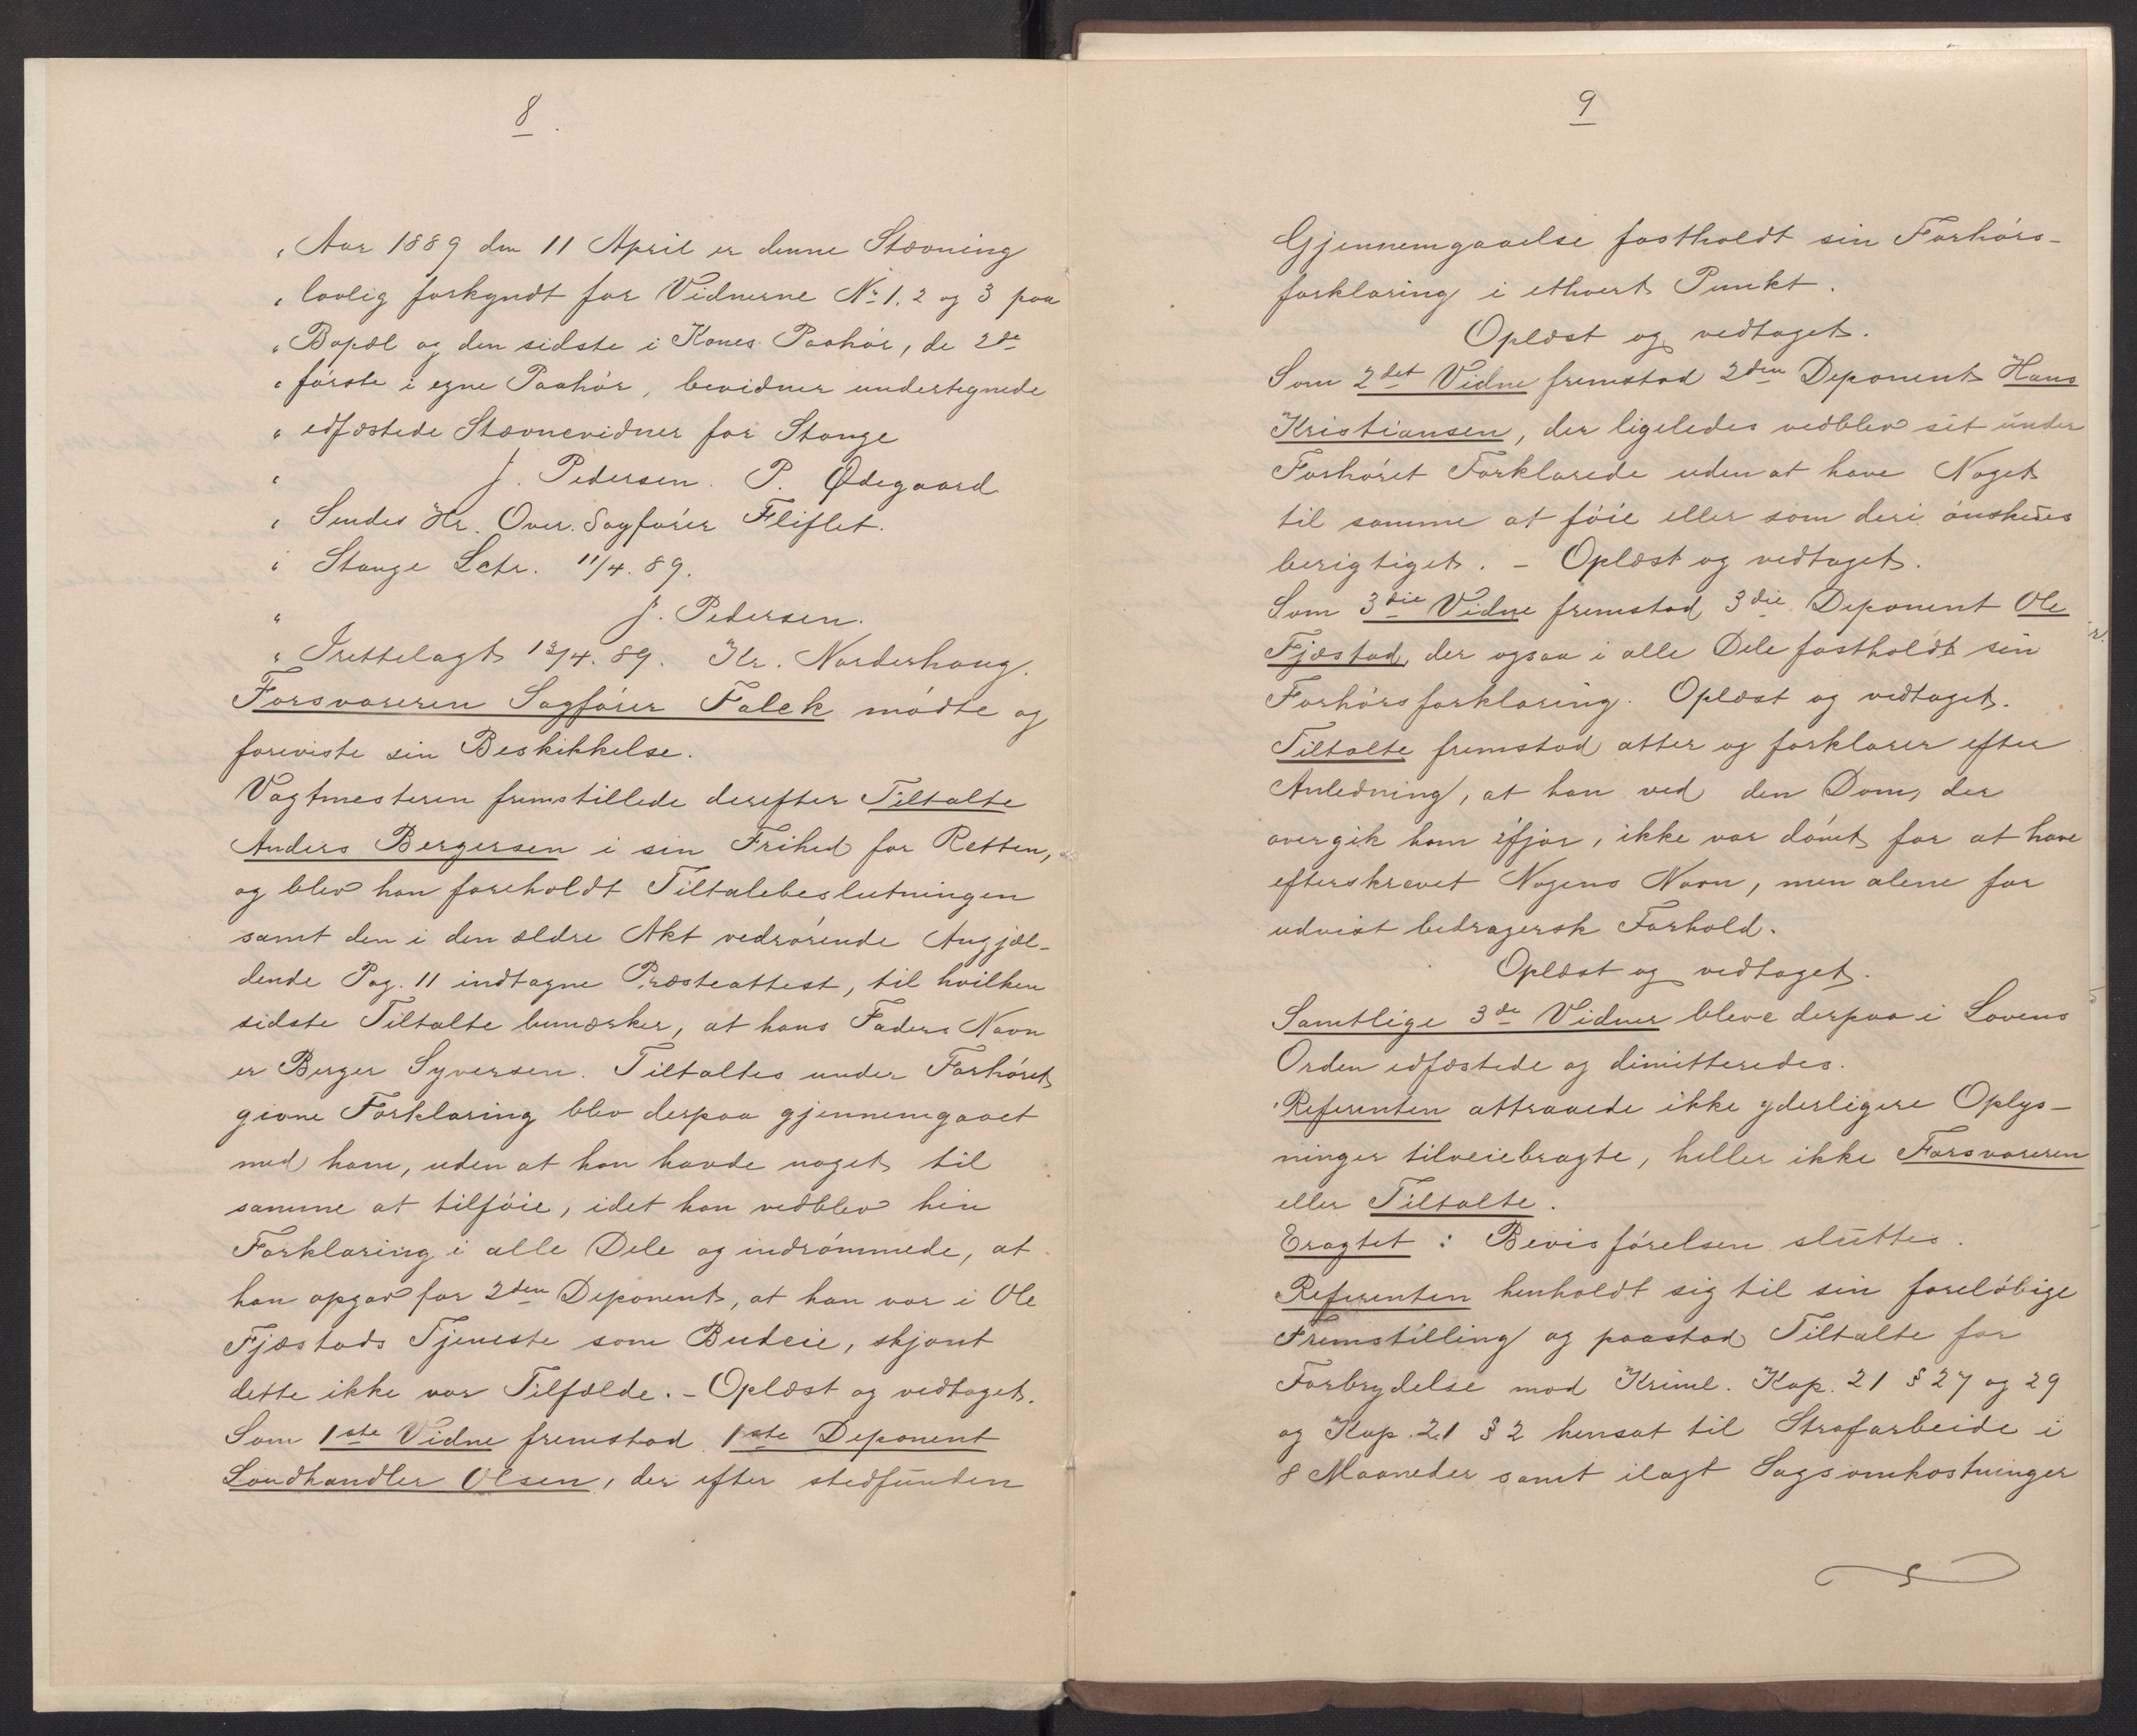 8
„ Aar 1889 den 11 April er denne Stævning
„ lovlig forkyndt for Vidnerne No 1. 2 og 3 paa
„ Bopæl og den sidste i Kones Paahør, de 2de
„ første i egne Paahør, bevidner undertegnede
„ edfæstede Stævnevidner for Stange
„ J. Pedersen. P. Ødegaard
„ Sendes Hr. Over. Sagfører Fliflet.
„ Stange Lctr. 11/4. 89.
„ J. Pedersen.
„ Irettelagt 13/4. 89. Kr. Norderhaug.
Forsvareren Sagfører Falck mødte og
foreviste sin Beskikkelse.
Vagtmesteren fremstillede derefter Tiltalte
Anders Bergersen i sin Frihed for Retten,
og blev han foreholdt Tiltalebeslutningen
samt den i den ældre Akt vedrørende Angjæl-
dende Pag. 11 indtagne Præsteattest, til hvilken
sidste Tiltalte bemærker, at hans Faders Navn
er Berger Syversen. Tiltaltes under Forhøret
givne Forklaring blev derpaa gjennemgaaet
med ham, uden at han havde noget til
samme at tilføie, idet han vedblev hin
Forklaring i alle Dele og indrømmede, at
han opgav for 2den Deponent, at han var i Ole
Fjæstads Tjeneste som Budeie, skjønt
dette ikke var Tilfælde. – Oplæst og vedtaget.
Som 1ste Vidne fremstod 1ste Deponent
Landhandler Olsen, der efter stedfunden
9
Gjennemgaaelse fastholdt sin Forhørs-
forklaring i ethvert Punkt.
Oplæst og vedtaget.
Som 2det Vidne fremstod 2den Deponent Hans
Kristiansen, der ligeledes vedblev sit under
Forhøret Forklarede uden at have Noget
til samme at føie eller som deri ønskedes
berigtiget. – Oplæst og vedtaget.
Som 3die Vidne fremstod 3die Deponent Ole
Fjæstad, der ogsaa i alle Dele fastholdt sin
Forhørsforklaring. Oplæst og vedtaget.
Tiltalte fremstod atter og forklarer efter
Anledning, at han ved den Dom, der
overgik ham ifjor, ikke var dømt for at have
efterskrevet Nogens Navn, men alene for
udvist bedragersk Forhold.
Oplæst og vedtaget.
Samtlige 3de Vidner bleve derpaa i Lovens
Orden edfæstede og dimitteredes.
Referenten attraaede ikke yderligere Oplys-
ninger tilveiebragte, heller ikke Forsvareren
eller Tiltalte.
Eragtet: Bevisførelsen sluttes.
Referenten henholdt sig til sin foreløbige
Fremstilling og paastod Tiltalte for
Forbrydelse mod Kriml. Kap. 21 § 27 og 29
og Kap. 21 § 2 hensat til Strafarbeide i
8 Maaneder samt ilagt Sagsomkostninger